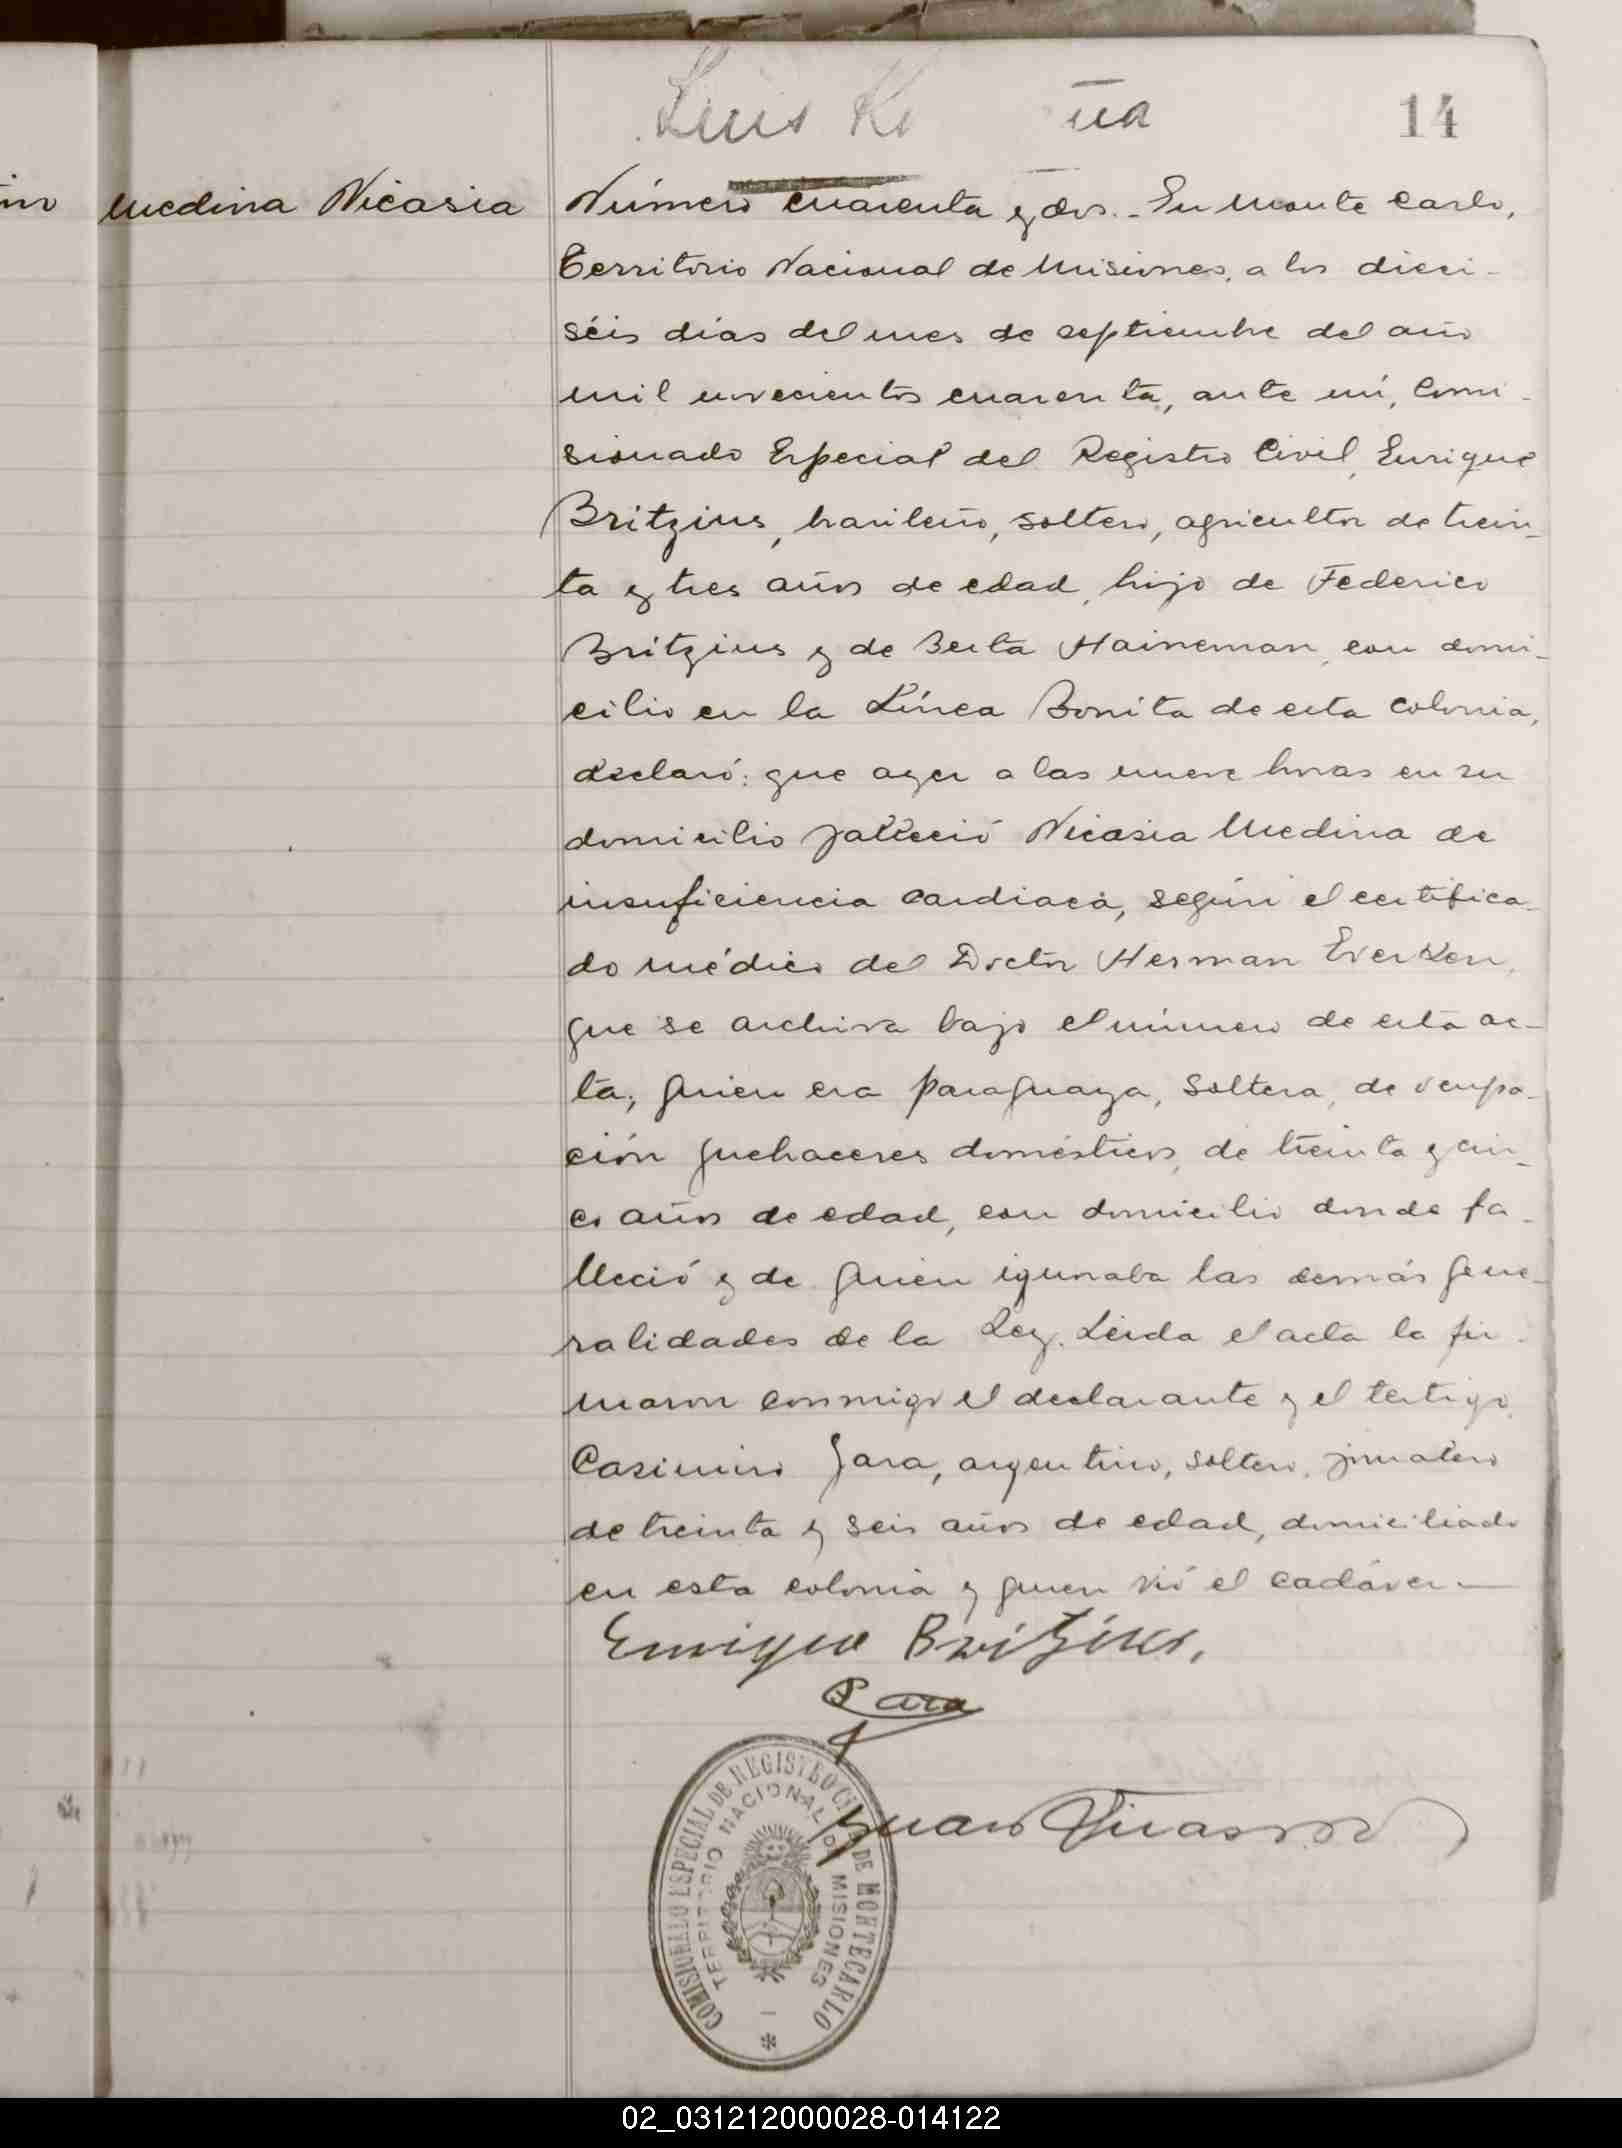 Luis
14
Medina Nicasia
Número cuarenta y dos.- En Monte Carlo,
Territorio Nacional de Misiones, a los dieci-
séis días del mes de septiembre del año
mil novecientos cuarenta, ante mí, Comi-
sionado Especial del Registro Civil, Enrique
Britzius, brasileño, soltero, agricultor de trein-
ta y tres años de edad, hijo de Federico
Britzius y de Berta Haineman, con domi-
cilio en la Línea Bonita de esta colonia,
declaró: que ayer a las nueve horas en su
domicilio falleció Nicasia Medina de
insuficiencia cardiaca, según el certifica-
do médico del Doctor Herman Everken,
que se archiva bajo el número de esta ac-
ta; quien era paraguaya, soltera, de ocupa-
ción quehaceres domésticos, de treinta y cin-
co años de edad, con domicilio donde fa-
lleció y de quien ignoraba las demás gene-
ralidades de la Ley. Leída el acta la fir-
maron conmigo el declarante y el testigo
Casimiro Jara, argentino, soltero, jornalero
de treinta y seis años de edad, domiciliado
en esta colonia y quien vió el cadáver.—
Enrique Britzius.
Jara
COMISIONADO ESPECIAL DE REGISTRO CIVIL DE MONTECARLO
TERRITORIO NACIONAL DE MISIONES
02_031212000028-014122